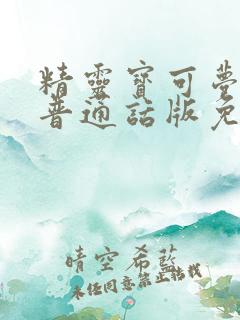 精靈寶可夢
普通話版免
晴空希藍
未任同意禁止轉載